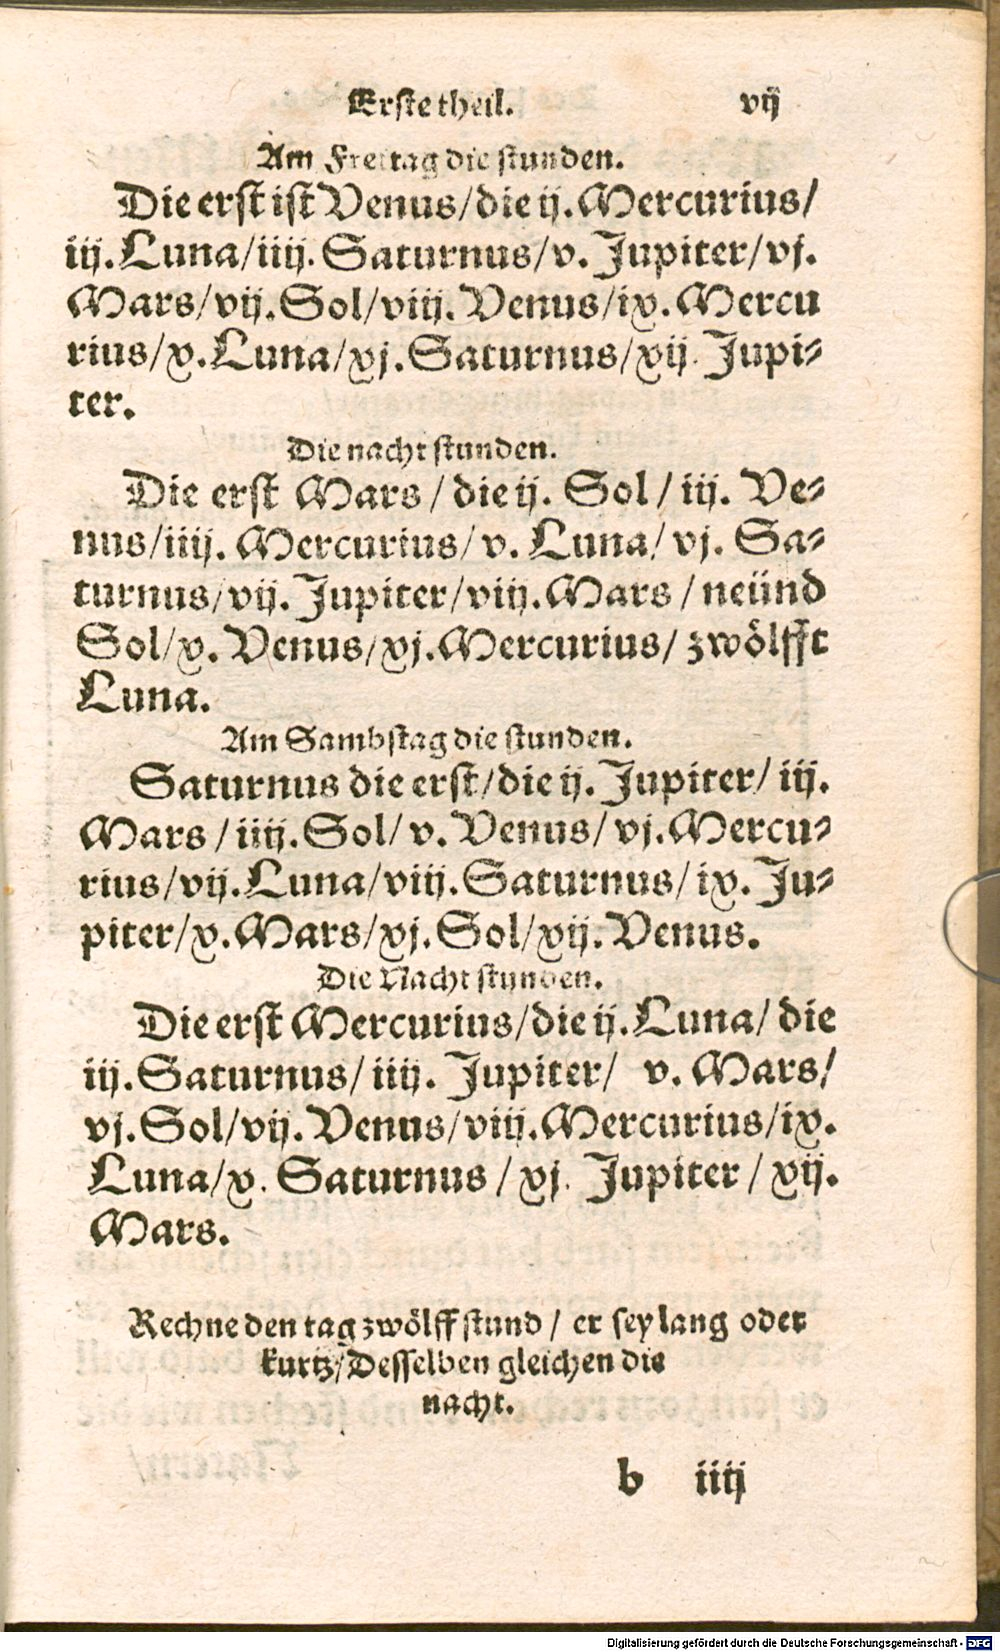 Erste theil. vij
Am Freitag die stunden.
Die erst ist Venus/die ij. Mercurius/
iij. Luna/iiij. Saturnus/v. Jupiter/vj.
Mars/vij. Sol/viij. Venus/ix. Mercu
rius/x. Luna/xj. Saturnus/xij. Jupi-
ter.
Die nacht stunden.
Die erst Mars/die ij. Sol/iij. Ve-
nus/iiij. Mercurius/v. Luna/vj. Sa-
turnus/vij. Jupiter/viij. Mars/neünd
Sol/x. Venus/xj. Mercurius/zwölfft
Luna.
Am Sambstag die stunden.
Saturnus die erst/die ij. Jupiter/iij.
Mars/iiij. Sol/v. Venus/vj. Mercu-
rius/vij. Luna/viij. Saturnus/ix. Ju-
piter/x. Mars/xj. Sol/xij. Venus.
Die Nacht stunden.
Die erst Mercurius/die ij. Luna/die
iij. Saturnus/iiij. Jupiter/ v. Mars/
vj. Sol/vij. Venus/viij. Mercurius/ix.
Luna/x. Saturnus/xj. Jupiter/xij.
Mars.
Rechne den tag zwölff stund/ er sey lang oder
kurtz/Desselben gleichen die
nacht.
b iiij
Digitalisierung gefördert durch die Deutsche Forschungsgemeinschaft - DFG